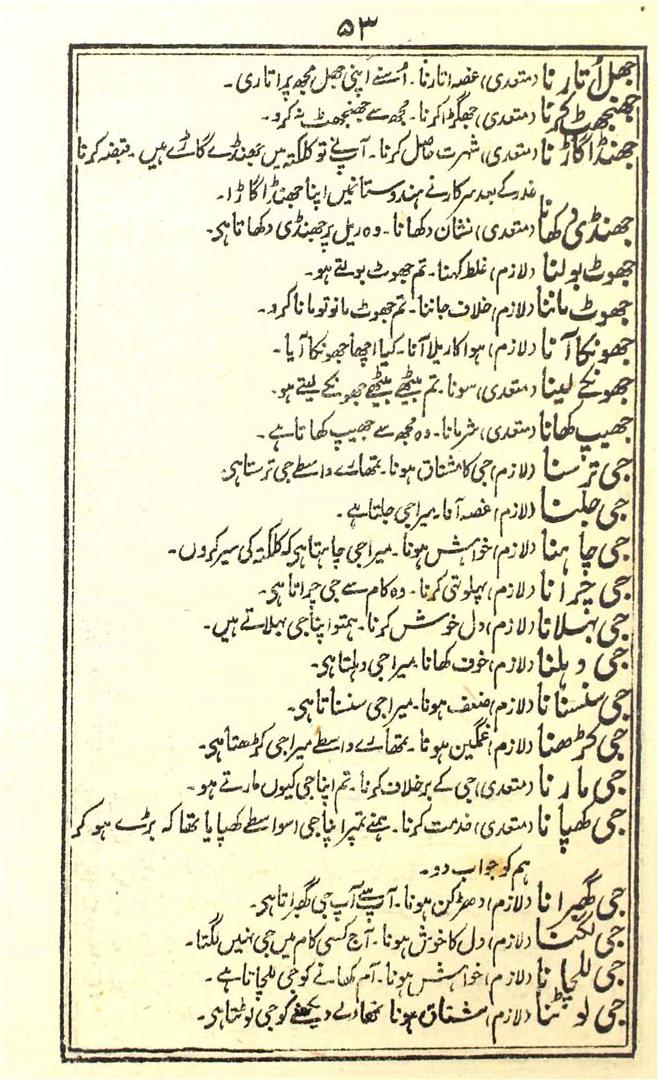 ۵۳
جھل اُتارنا (متعدی) غصہ اتارنا۔ اُسنے اپنی جھل مجھ پر اتاری۔
جھنجھٹ کرنا (متعدی) جھگڑا کرنا۔ مجھ سے جھنجھٹ نہ کرو۔
جھنڈا گاڑنا (متعدی) شہرت حاصل کرنا۔ آپنے تو کلکتہ میں جھنڈے گاڑے ہیں۔ قبضہ کرنا
غدر کے بعد سرکار نے ہندوستانمیں اپنا جھنڈا گاڑا۔
جھنڈی دکھانا (متعدی) نشان دکھانا۔ وہ ریل پر جھنڈی دکھاتا ہی۔
جھوٹ بولنا (لازم) غلط کہنا۔ تم جھوٹ بولتے ہو۔
جھوٹ ماننا (لازم) خلاف جاننا۔ تم جھوٹ مانو تو مانا کرو۔
جھونکا آنا (لازم) ہوا کا ریلا آنا۔ کیا اچھا جھونکا آیا۔
جھونکے لینا (متعدی) سونا۔ تم بیٹھے بیٹھے جھونکے لیتے ہو۔
جھیپ کھانا (متعدی) شرمانا۔ وہ مجھ سے جھیپ کھاتا ہے۔
جی ترسنا (لازم) جی کا مشتاق ہونا۔ تمھارے واسطے جی ترستا ہی۔
جی جلنا (لازم) غصہ آنا۔ میرا جی جلتا ہے۔
جی چاہنا (لازم) خواہش ہونا۔ میرا جی چاہتا ہی کہ کلکتہ کی سیر کروں۔
جی چرانا (لازم) پہلوتی کرنا۔ وہ کام سے جی چراتا ہی۔
جی بہلانا (لازم) دل خوش کرنا۔ ہمتو اپنا جی بہلاتے ہیں۔
جی دہلنا (لازم) خوف کھانا۔ میرا جی دہلتا ہی۔
جی سنسنانا (لازم) ضعف ہونا۔ میرا جی سنسناتا ہی۔
جی کڑھنا (لازم) غمگین ہونا۔ تمھارے واسطے میرا جی کڑھتا ہی۔
جی مارنا (متعدی) جی کے برخلاف کرنا۔ تم اپنا جی کیوں مارتے ہو۔
جی کھپانا (متعدی) خدمت کرنا۔ ہمنے تمپر اپنا جی اسواسطے کھپایا تھا کہ بڑے ہو کر
ہم کو جواب دو۔
جی گھبرانا (لازم) دھڑکن ہونا۔ آپ سے آپ جی گھبراتا ہی۔
جی لگنا (لازم) دل کا خوش ہونا۔ آج کسی کام میں جی نہیں لگتا۔
جی للچانا (لازم) خواہش ہونا۔ آم کھانے کو جی للچاتا ہے۔
جی لوٹنا (لازم) مشتاق ہونا تمھارے دیکھنے کو جی لوٹتا ہی۔